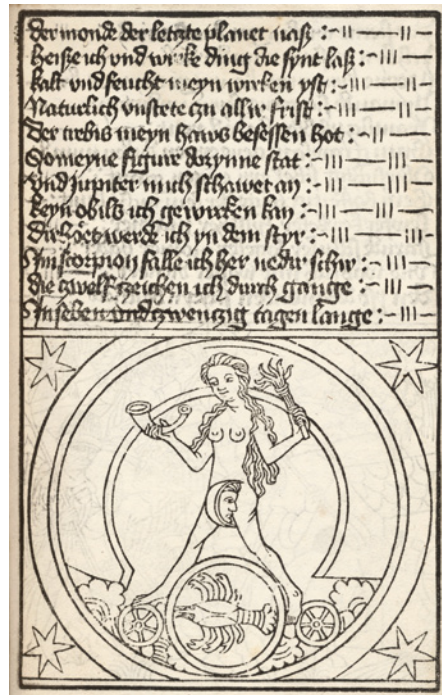 der monde der letzte planet naß :~ıı—ıı—
heiße ich vnd wirke ding die synt laß :~ııı—
kalt vnd feucht meyn wirken yst :~ııı—ııı—
Naturlich vnstete czu aller frist :~ııı—ııı—
Der crebis meyn haws besessen hot :~ıı—
So meyne figure dorynne stat :~ııı—ııı—
vnd jupiter mich schawet an :~ııı—ııı—
keyn obils ich gewircken kan :~ııı—ııı—
Dirhoet werde ich yn dem styr :~ııı—
Im scorpion falle ich her nedir schir :~ııı—
die zwelff czeichen ich durch gange :~ııı—
In seben vnd czwenczig tagen lange :~ııı—